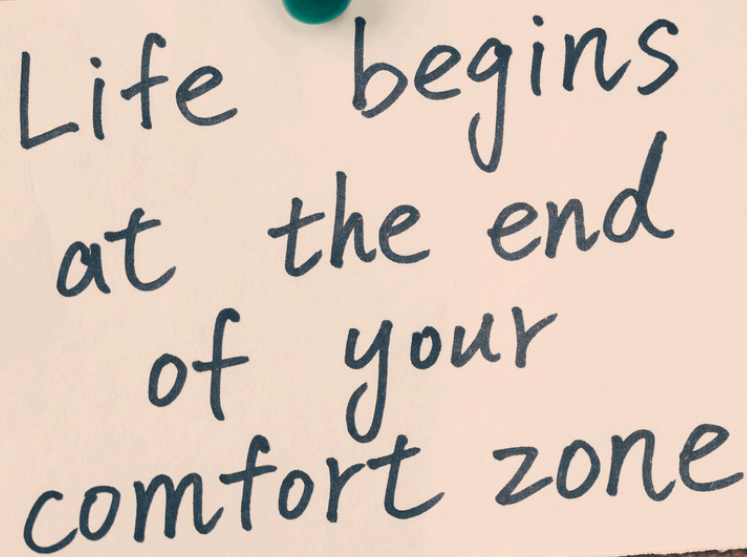 Life begins
at the end
of your
comfort zone